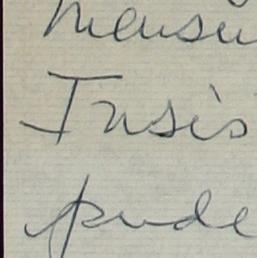 mensu
Insis
pude